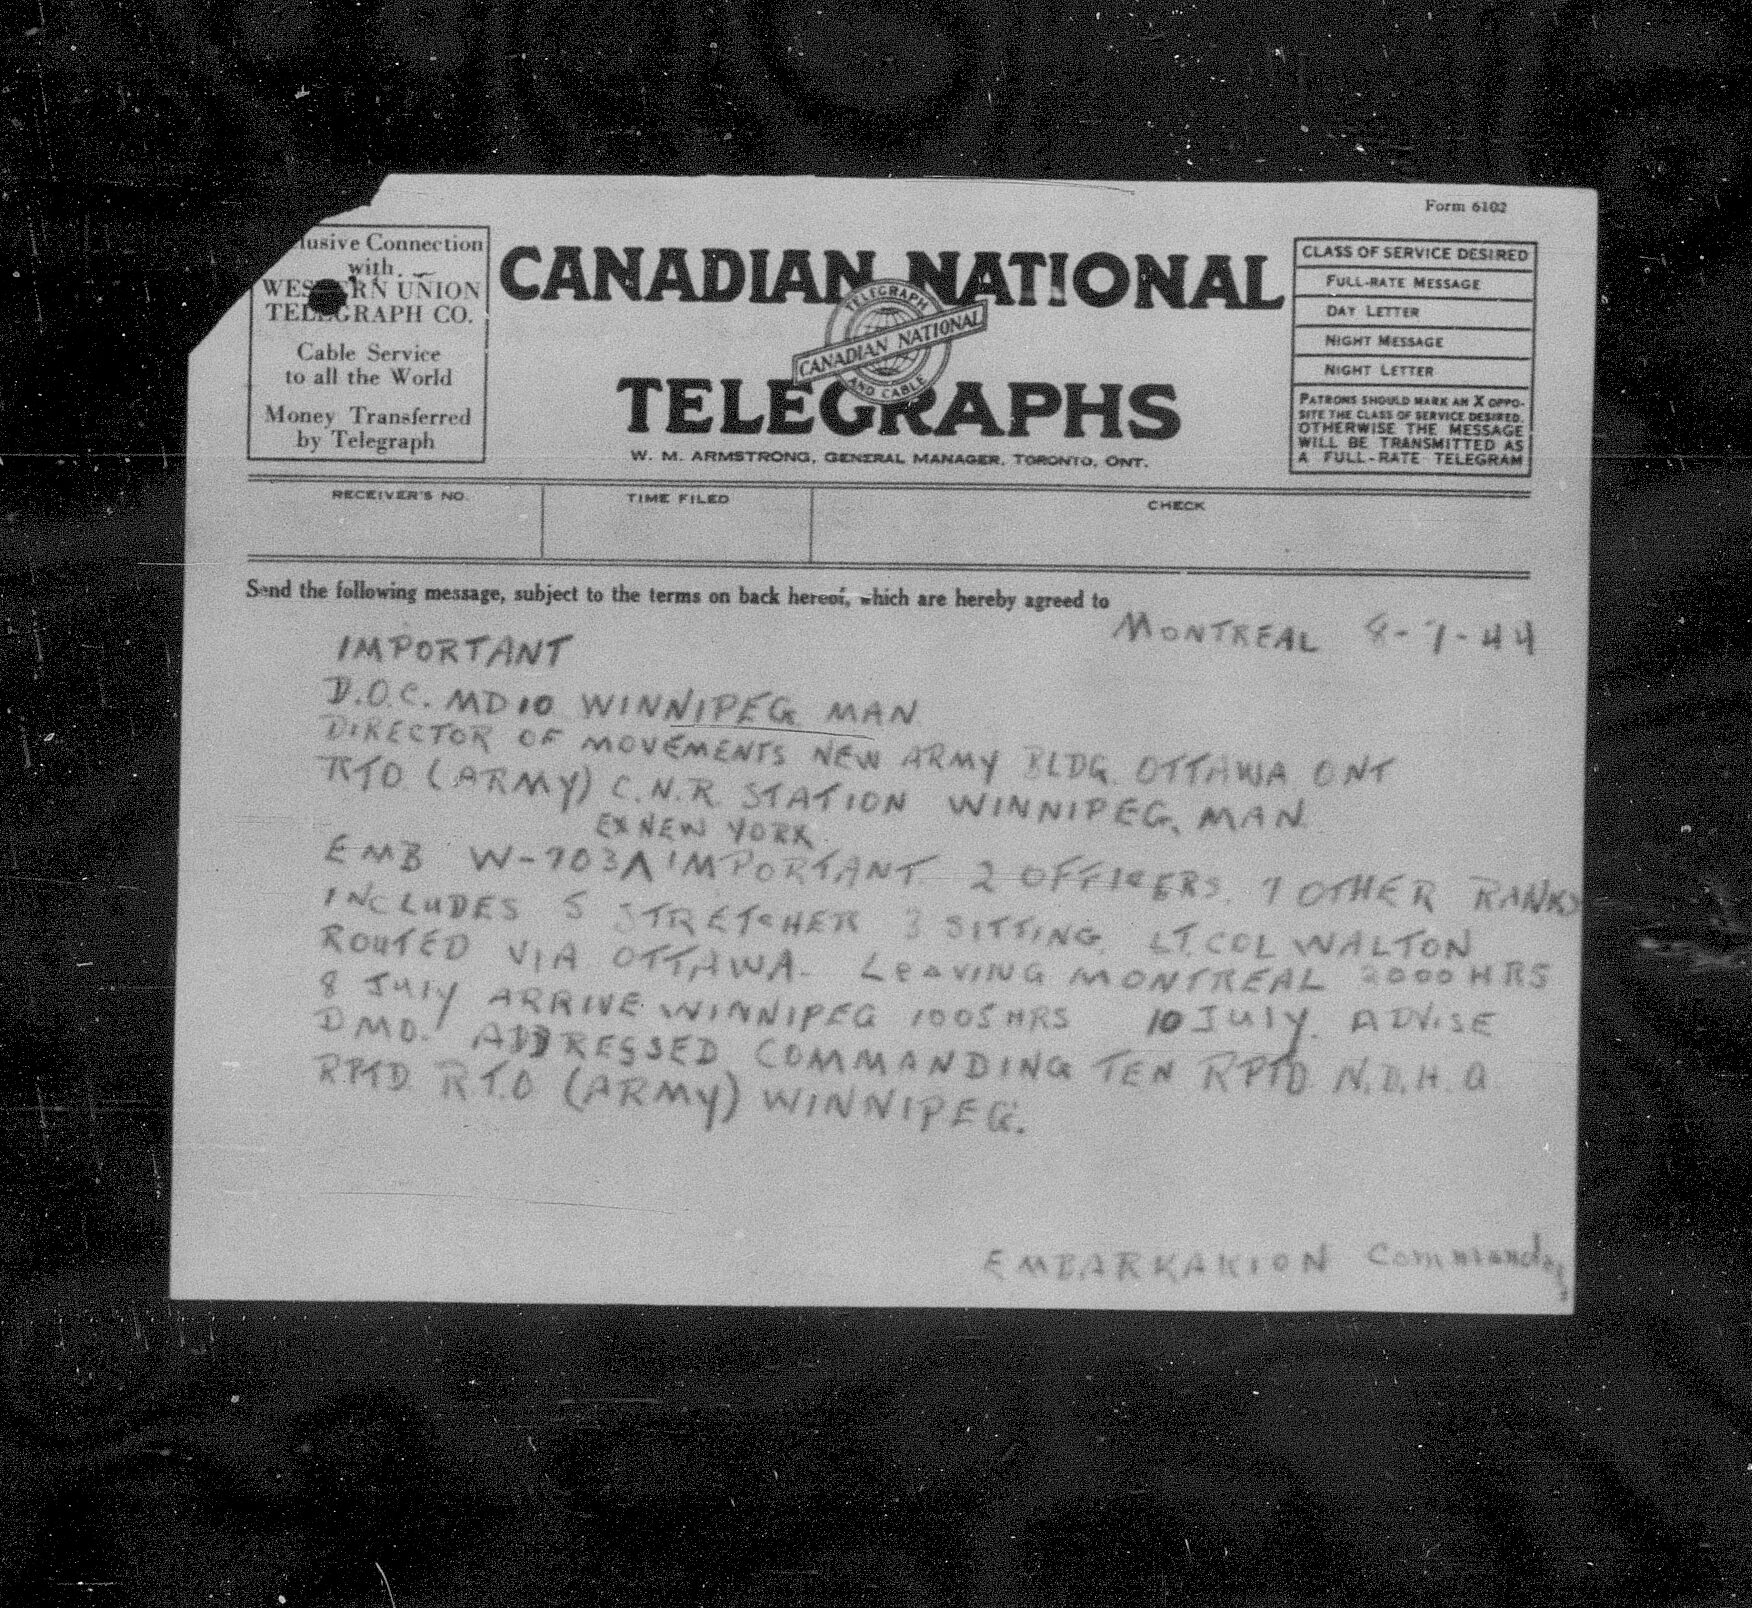 Form 6102
lusive Connection
with
WESTERN UNION
TELEGRAPH CO.
Cable Service
to all the World
Money Transferred
by Telegraph
CANADIAN NATIONAL
TELEGRAPH
CANADIAN NATIONAL
AND CABLE
TELEGRAPHS
W. M. ARMSTRONG, GENERAL MANAGER, TORONTO, ONT.
CLASS OF SERVICE DESIRED
FULL-RATE MESSAGE
DAY LETTER
NIGHT MESSAGE
NIGHT LETTER
PATRONS SHOULD MARK AN X OPPO-
SITE THE CLASS OF SERVICE DESIRED.
OTHERWISE THE MESSAGE
WILL BE TRANSMITTED AS
A FULL-RATE TELEGRAM
RECEIVER'S NO.
TIME FILED
CHECK
Send the following message, subject to the terms on back hereof, which are hereby agreed to
MONTREAL 8-7-44
IMPORTANT
D.O.C. MD 10 WINNIPEG MAN
DIRECTOR OF MOVEMENTS NEW ARMY BLDG. OTTAWA ONT
RTO (ARMY) C.N.R. STATION WINNIPEG, MAN.
EX NEW YORK.
EMB W-703 IMPORTANT. 2 OFFICERS. 7 OTHER RANKS
INCLUDES 5 STRETCHER 3 SITTING. LT. COL WALTON
ROUTED VIA OTTAWA- LEAVING MONTREAL 2000 HRS
8 JULY ARRIVE WINNIPEG 1005 HRS 10 JULY. ADVISE
DMO. ADDRESSED COMMANDING TEN RPTD N.D.H.Q.
RPTD RT.O (ARMY) WINNIPEG.
EMBARKAKION Commandar